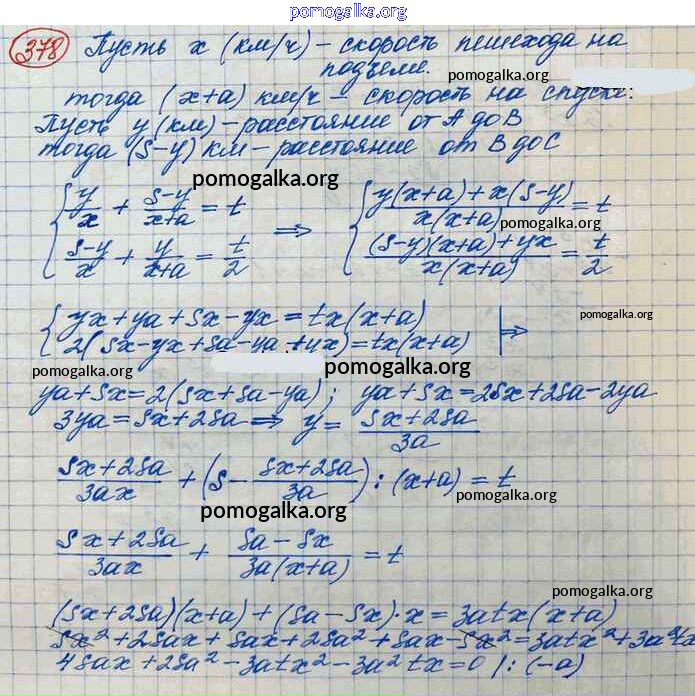 pomogalka.org
378 Пусть x (км/ч) – скорость пешехода на
подъёме.
pomogalka.org
тогда (x+a) км/ч – скорость на спуске:
Пусть y (км) – расстояние от A до B
тогда (S-y) км – расстояние от B до C
pomogalka.org
{ y/x + (S-y)/(x+a) = t ⇒ { (y(x+a)+x(S-y))/(x(x+a)) = t
pomogalka.org
(S-y)/x + y/(x+a) = t/2 ((S-y)(x+a)+yx)/(x(x+a)) = t/2
pomogalka.org
{ yx+ya+Sx-yx=tx(x+a)
2(Sx-yx+Sa-ya+yx)=tx(x+a) |⇒
pomogalka.org
pomogalka.org
ya+Sx=2(Sx+Sa-ya); ya+Sx=2Sx+2Sa-2ya
3ya=Sx+2Sa ⇒ y= (Sx+2Sa)/3a
(Sx+2Sa)/3ax + (S - (Sx+2Sa)/3a) : (x+a) = t
pomogalka.org
pomogalka.org
(Sx+2Sa)/3ax + (Sa-Sx)/(3a(x+a)) = t
pomogalka.org
(Sx+2Sa)(x+a)+(Sa-Sx)·x=3atx(x+a)
Sx²+2Sax+Sax+2Sa²+Sax-Sx²=3atx²+3a²tx
4Sax+2Sa²-3atx²-3a²tx=0 /:(-a)